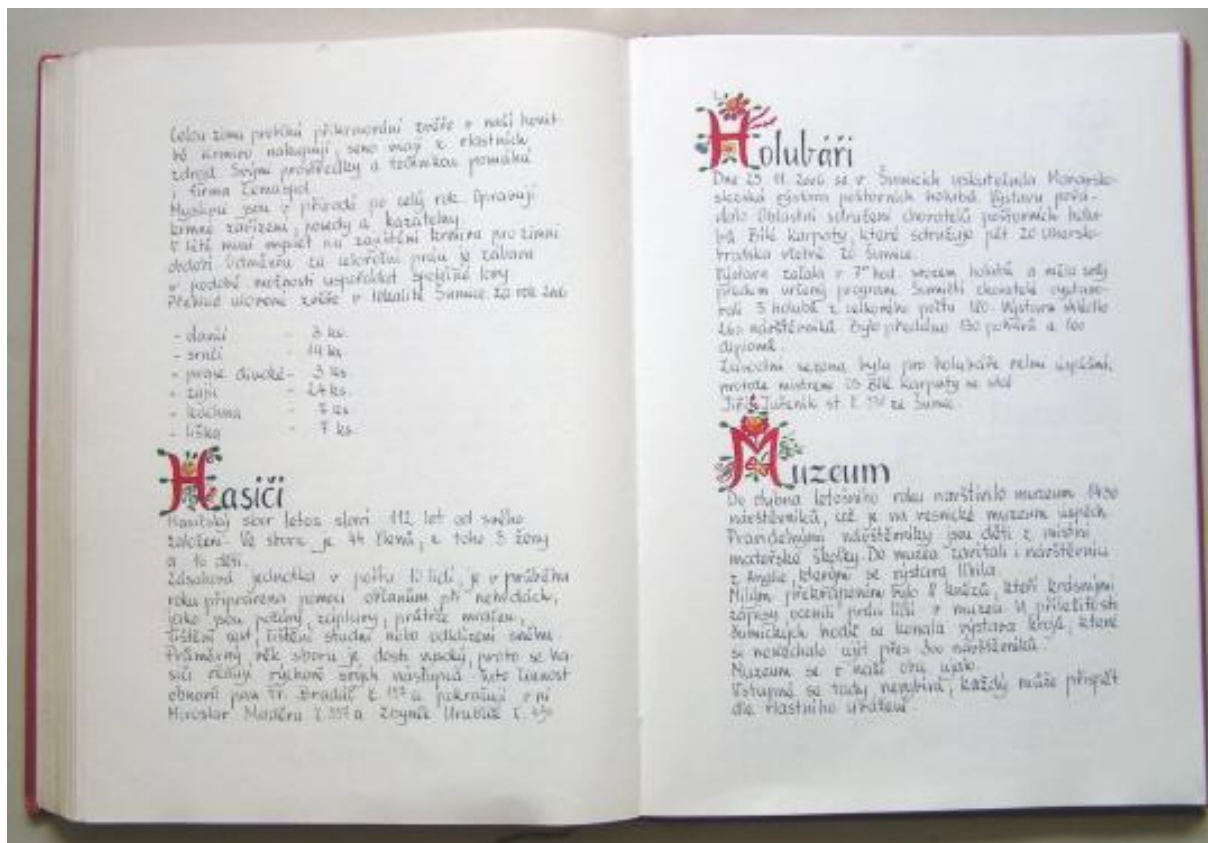 Celou zimu probíhá přikrmování zvěře v naší honit-
bě krmivo nakupují, seno mají z vlastních
zdrojů. Svými prostředky a technikou pomáhá
i firma Zemaspol.
Myslivci jsou v přírodě po celý rok. Opravují
krmné zařízení, posedy a kazatelny.
V létě musí myslet na zajištění krmiva pro zimní
období. Odměnou za celoroční práci je zábava
v podobě možnosti uspořádat společné hony.
Přehled ulovené zvěře v lokalitě Šumice za rok 2006
- daňčí - 3 ks.
- srnčí - 14 ks.
- prase divoké - 3 ks.
- zajíc - 24 ks.
- kachna - 7 ks.
- liška - 7 ks.
Hasiči
Hasičský sbor letos slaví 112 let od svého
založení. Ve sboru je 44 členů, z toho 3 ženy
a 10 dětí.
Zásahová jednotka v počtu 10 lidí, je v průběhu
roku připravena pomoci občanům při nehodách,
jako jsou požáry, záplavy, průtrže mračen,
čištění cest, čištění studní nebo odklízení sněhu.
Průměrný věk sboru je dosti vysoký, proto se ha-
siči věnují výchově svých nástupců. Tuto činnost
obnovil pan Fr. Bradáč č. 157 a pokračují v ní
Miroslav Maděra č. 337 a Zbyněk Urubčík č. 430
Holubáři
Dne 25. 11. 2006 se v Šumicích uskutečnila Moravsko-
slezská výstava poštovních holubů. Výstavu pořá-
dalo Oblastní sdružení chovatelů poštovních holu-
bů Bílé Karpaty, které sdružuje pět ZO Uhersko-
hradišťska včetně ZO Šumice.
Výstava začala v 7 hod. svozem holubů a měla svůj
předem určený program. Šumičtí chovatelé vystavo-
vali 5 holubů z celkového počtu 120. Výstavu shlédlo
260 návštěvníků. Bylo předáno 130 pohárů a 160
diplomů.
Závodní sezona byla pro holubáře velmi úspěšná,
protože mistrem OS Bílé Karpaty se stal
Jiří st. č. ze Šumic.
Muzeum
Do dubna letošního roku navštívilo muzeum 1430
návštěvníků, což je na vesnické muzeum úspěch.
Pravidelnými návštěvníky jsou děti z místní
mateřské školky. Do muzea zavítali i návštěvníci
z Anglie, kterým se výstava líbila.
Milým překvapením bylo 8 kněžů, kteří krásnými
zápisy ocenili práci lidí v muzeu. U příležitosti
šumických hodů se konala výstava krojů, které
si nenechalo ujít přes 300 návštěvníků.
Muzeum se v naší obci ujalo.
Vstupné se tady nevybírá, každý může přispět
dle vlastního uvážení